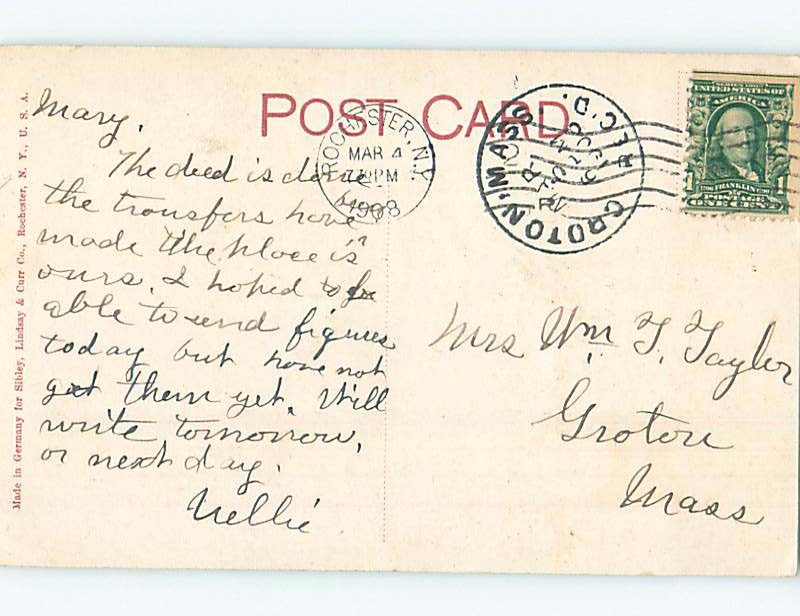 POST CARD
Made in Germany for Sibley, Lindsay & Curr Co., Rochester, N. Y., U. S. A.
Mary,
The deed is done
the transfers have been
made & the place is
ours. I hoped to be
able to send figures
today but have not
got them yet. Will
write tomorrow,
or next day.
Nellie
ROCHESTER, N.Y.
MAR 4
PM
1908
GROTON, MASS
REC'D.
UNITED STATES OF
AMERICA
1 FRANKLIN 1
Mrs Wm. F. Taylor
Groton
Mass